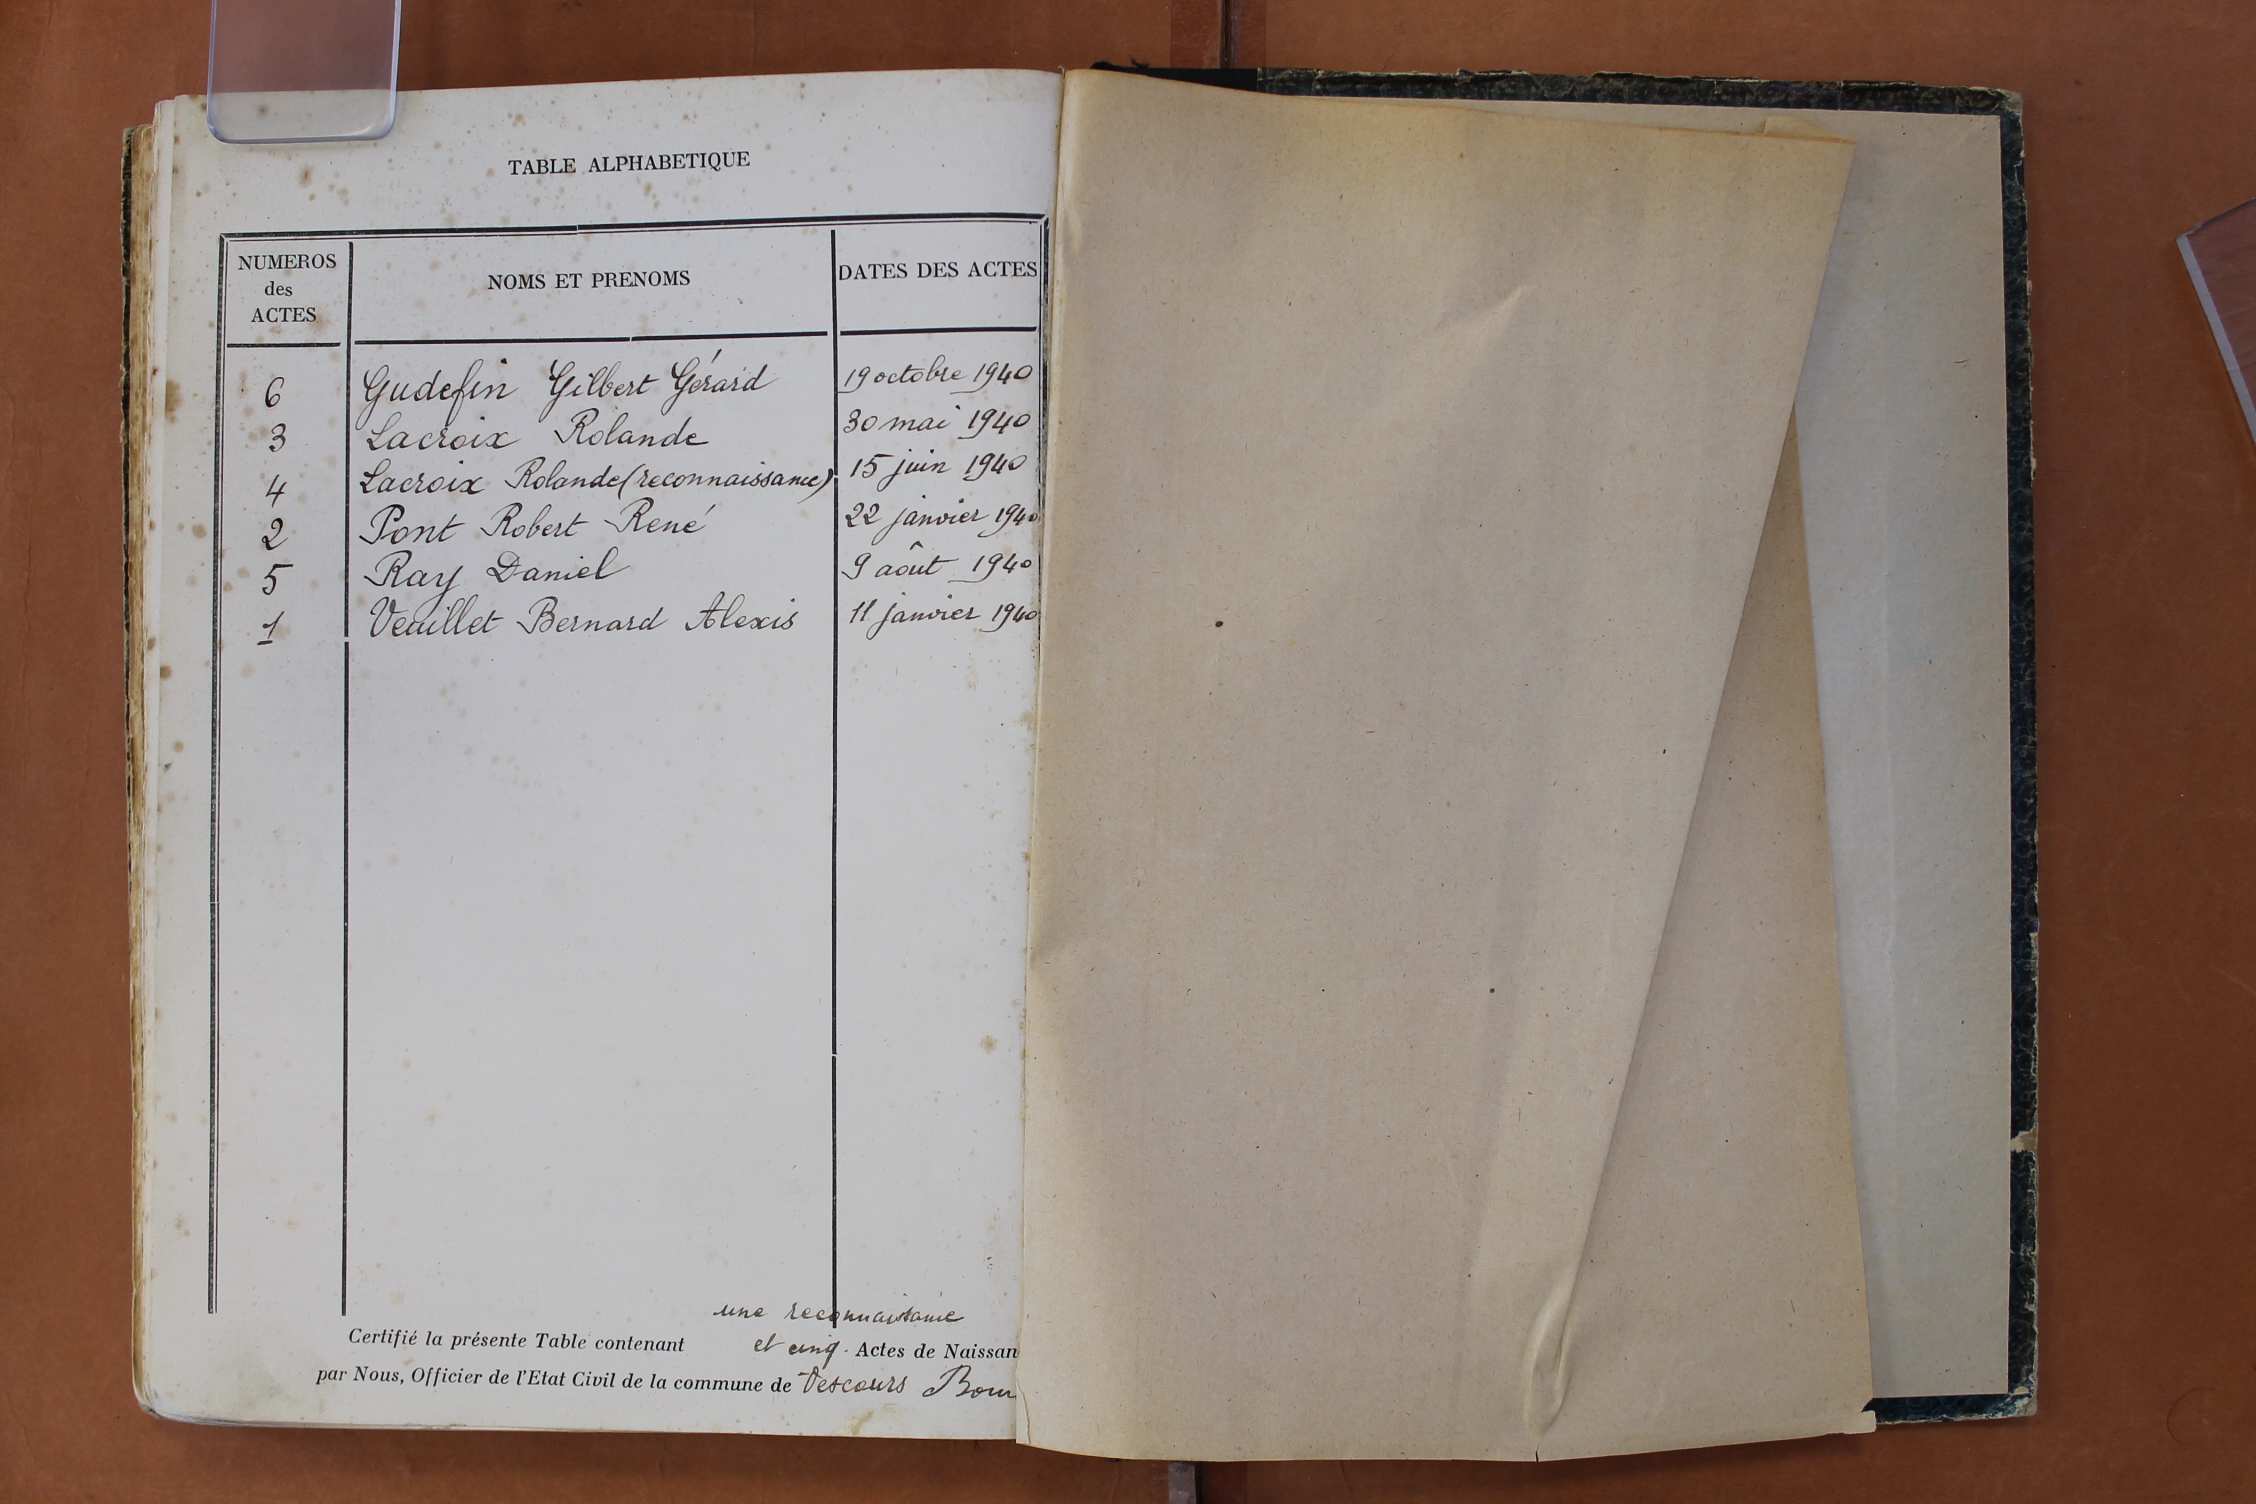 TABLE ALPHABETIQUE
NUMEROS des ACTES NOMS ET PRENOMS DATES DES ACTES
6 Gudefin Gilbert Gérard 19 octobre 1940
3 Lacroix Rolande 30 mai 1940
4 Lacroix Rolande (reconnaissance) 15 juin 1940
2 Pont Robert René 22 janvier 1940
5 Ray Daniel 9 aôut 1940
1 Veuillet Bernard Alexis 11 janvier 1940
une reconnaissance
Certifié la présente Table contenant et cinq. Actes de Naissan
par Nous, Officier de l'Etat Civil de la commune de Vescours Bour